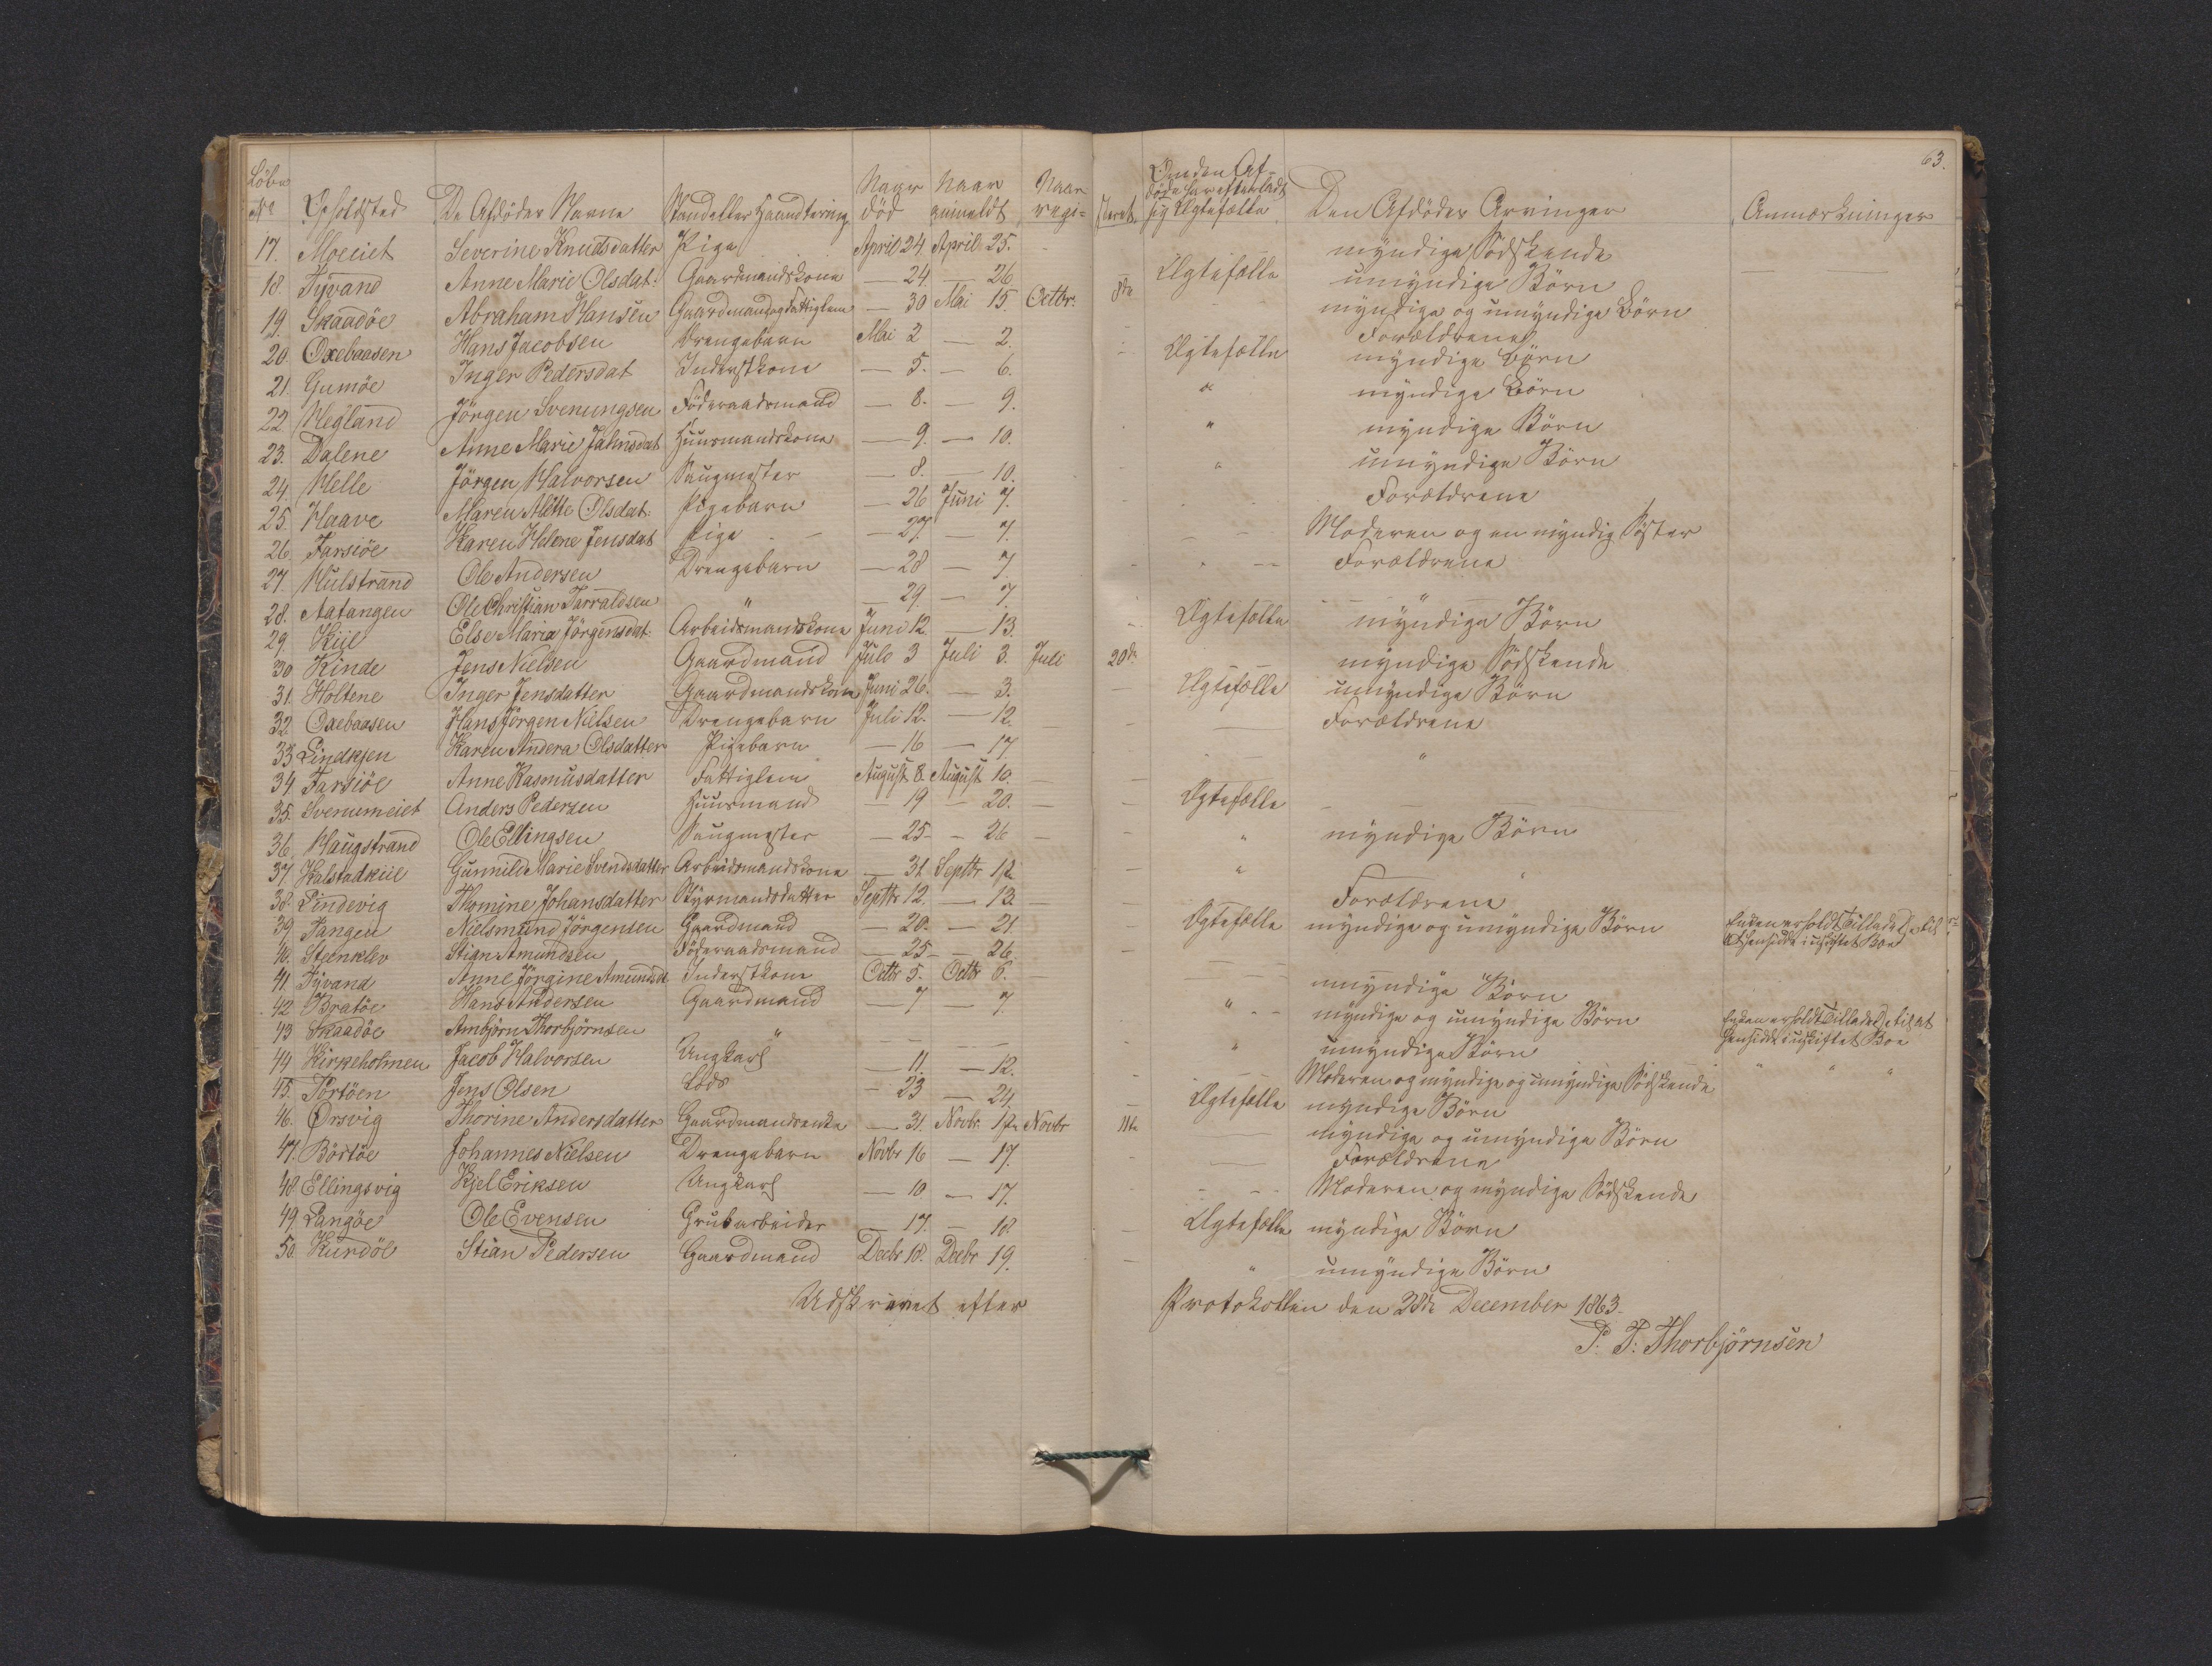 63.
Löbe No Opholdsted De Afdödes Navne Stand eller Haandtering Naar død Naar anmeldt Naar regi= streret Om den Af= døde har efterladt sig Ægtefælle Den Afdødes Arvinger Anmærkninger
17. Moeiet Severine Knudsdatter Pige April 24. April 25. myndige Södskende
18. Tyvand Anne Marie Olsdat: Gaardmandskone — 24. — 26 Ægtefælle umyndige Börn
19. Skaadöe Abraham Hansen Gaardmand og Fattiglem — 30 Mai 15. Octbr: 8de myndige og umyndige Börn
20. Oxebaasen Hans Jacobsen Drengebarn Mai 2 — 2. Forældrene
21. Gumöe Inger Pedersdat Inderstkone — 5. — 6. Ægtefælle myndige Börn
22. Hegland Jörgen Svenungsen Föderaadsmand — 8. — 9. " myndige Börn
23. Dalene Anne Marie Jahnsdat Huusmandskone — 9. — 10. " myndige Börn
24. Helle Jörgen Halvorsen Saugmester — 8. — 10. " umyndige Börn
25. Haave Maren Mette Olsdat: Pigebarn — 26 Juni 7. Forældrene
26. Farsiöe Karen Helene Jensdat Pige — 27. — 7. Moderen og en myndig Söster
27. Hulstrand Ole Andersen Drengebarn — 28 — 7 Forældrene
28. Aatangen Ole Christian Tarraldsen " — 29. — 7.
29. Kiil Else Maria Jörgensdat: Arbeidsmandskone Juni 12. — 13. Ægtefælle myndige Börn
30 Kinde Jens Nielsen Gaardmand Juli 3 Juli 3. Juli 20de myndige Södskende
31. Holtene Inger Jensdatter Gaardmandskone Juni 26. — 3. Ægtefælle umyndige Börn
32. Oxebaasen Hans Jörgen Nielsen Drengebarn Juli 12. — 12. Forældrene
33 Lindkjen Karen Andera Olsdatter Pigebarn — 16 — 17 "
34. Farsiöe Anne Rasmusdatter Fattiglem August 8 August 10.
35. Svenumeiet Anders Pedersen Huusmand — 19 — 20. Ægtefælle
36. Haugstrand Ole Ellingsen Saugmester — 25 — 26 " myndige Börn
37. Kalstadkiil Gunnild Marie Svendsdatter Arbeidsmandskone — 31 Septbr. 1ste " "
38. Lindevig Thomine Johansdatter Styrmandsdatter Septbr 12. — 13. Forældrene
39. Tangen Nielsmund Jörgensen Gaardmand — 20. — 21 Ægtefælle myndige og umyndige Börn Enken erholdt Tilladelse til at hensidde i uskiftet Boe
40. Steenklev Stian Amundsen Föderaadsmand — 25 — 26
41. Tyvand Anne Jörgine Amundsdt Inderstkone Octbr 5. Octbr 6. umyndige Börn
42 Bratöe Hans Andersen Gaardmand — 7 — 7. " myndige og umyndige Börn Enken erholdt Tilladelse til at hensidde i uskiftet Boe
43 Skaadöe Ambjörn Thorbjörnsen " — — " umyndige Börn " " "
44 Kirkeholmen Jacob Halvorsen Ungkarl — 11. — 12. Moderen og myndige og umyndige Södskende
45. Törtöen Jens Olsen Lods — 23 — 24. Ægtefælle myndige Börn
46. Ørsvig Thorine Andersdatter Gaardmandsenke — 31. Novbr. 1ste Novbr 11te myndige og umyndige Börn
47. Börtöe Johannes Nielsen Drengebarn Novbr 16 — 17. Forældrene
48 Ellingsvig Kjel Eriksen Ungkarl — 10 — 17. Moderen og myndige Södskende
49. Langöe Ole Evensen Grubarbeider — 17. — 18. Ægtefælle myndige Börn
50 Furdöl Stian Pedersen Gaardmand Decbr 18. Decbr 19. " umyndige Börn
Udskrevet efter Protokollen den 28de December 1863.
P. T. Thorbjörnsen